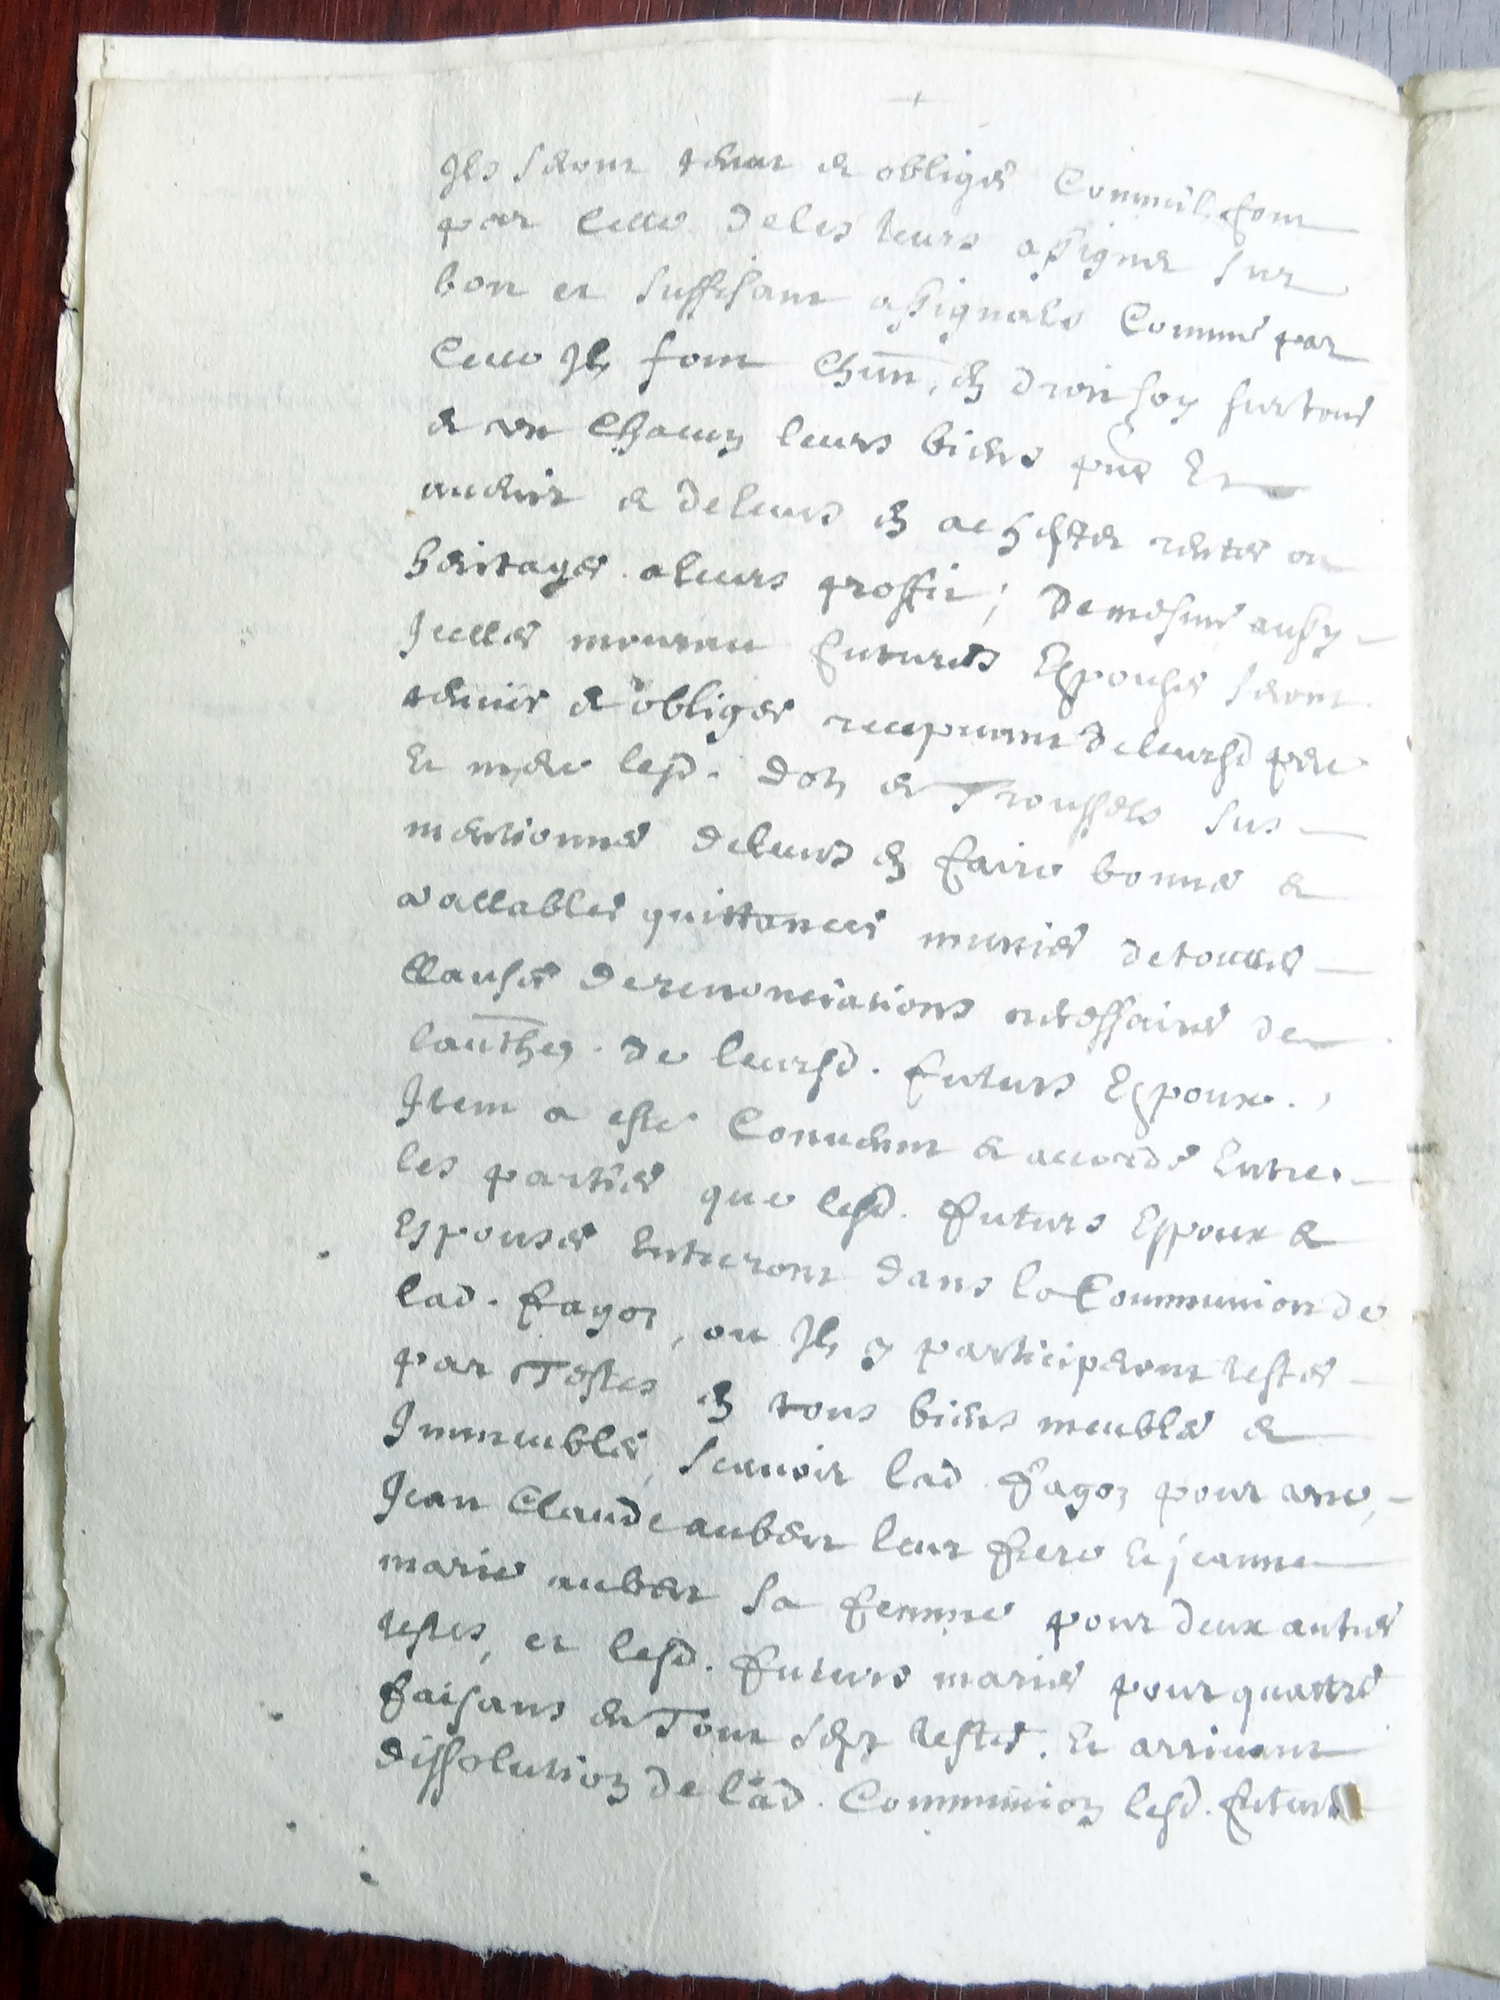 Ils seront tenu et obligés Comm'ils font
par cette de les leurs assigner sur
bon et suffisant assignals Comme par
cette Ils font Chūn, en droit soy sur tous
et un Chacun leurs biens pñs Et
auenir et de leurs en achester rentes ou
heritages a leurs proffit; De mesme aussy
Icelles futures Espouses seront
tenues et obliges receputant de leursd pere
Et mere lesd. don et Troussels sus
mentionnes de leurs en faire bonnes et
vallables quittances munies de touttes
Clauses de renonciations necessaires de
lauthen. de leursd. futurs Espoux.
Item a esté Conuenut et accordé Entre
les parties que lesd. futurs Espoux et
Espouses Entreront dans la Communion de
lad. fagoz, ou Ils y participeront testes
par Testes en tous biens meubles et
Immeubles, scauoir lad. fagoz pour une,
Jean Claude aubert leur frere Et jeanne
marie aubert sa femme pour deux autres
testes, et lesd. futurs mariés pour quattre
faisans en Tout sept testes. Et arriuant
dissolution de lad. Communion lesd. futurs